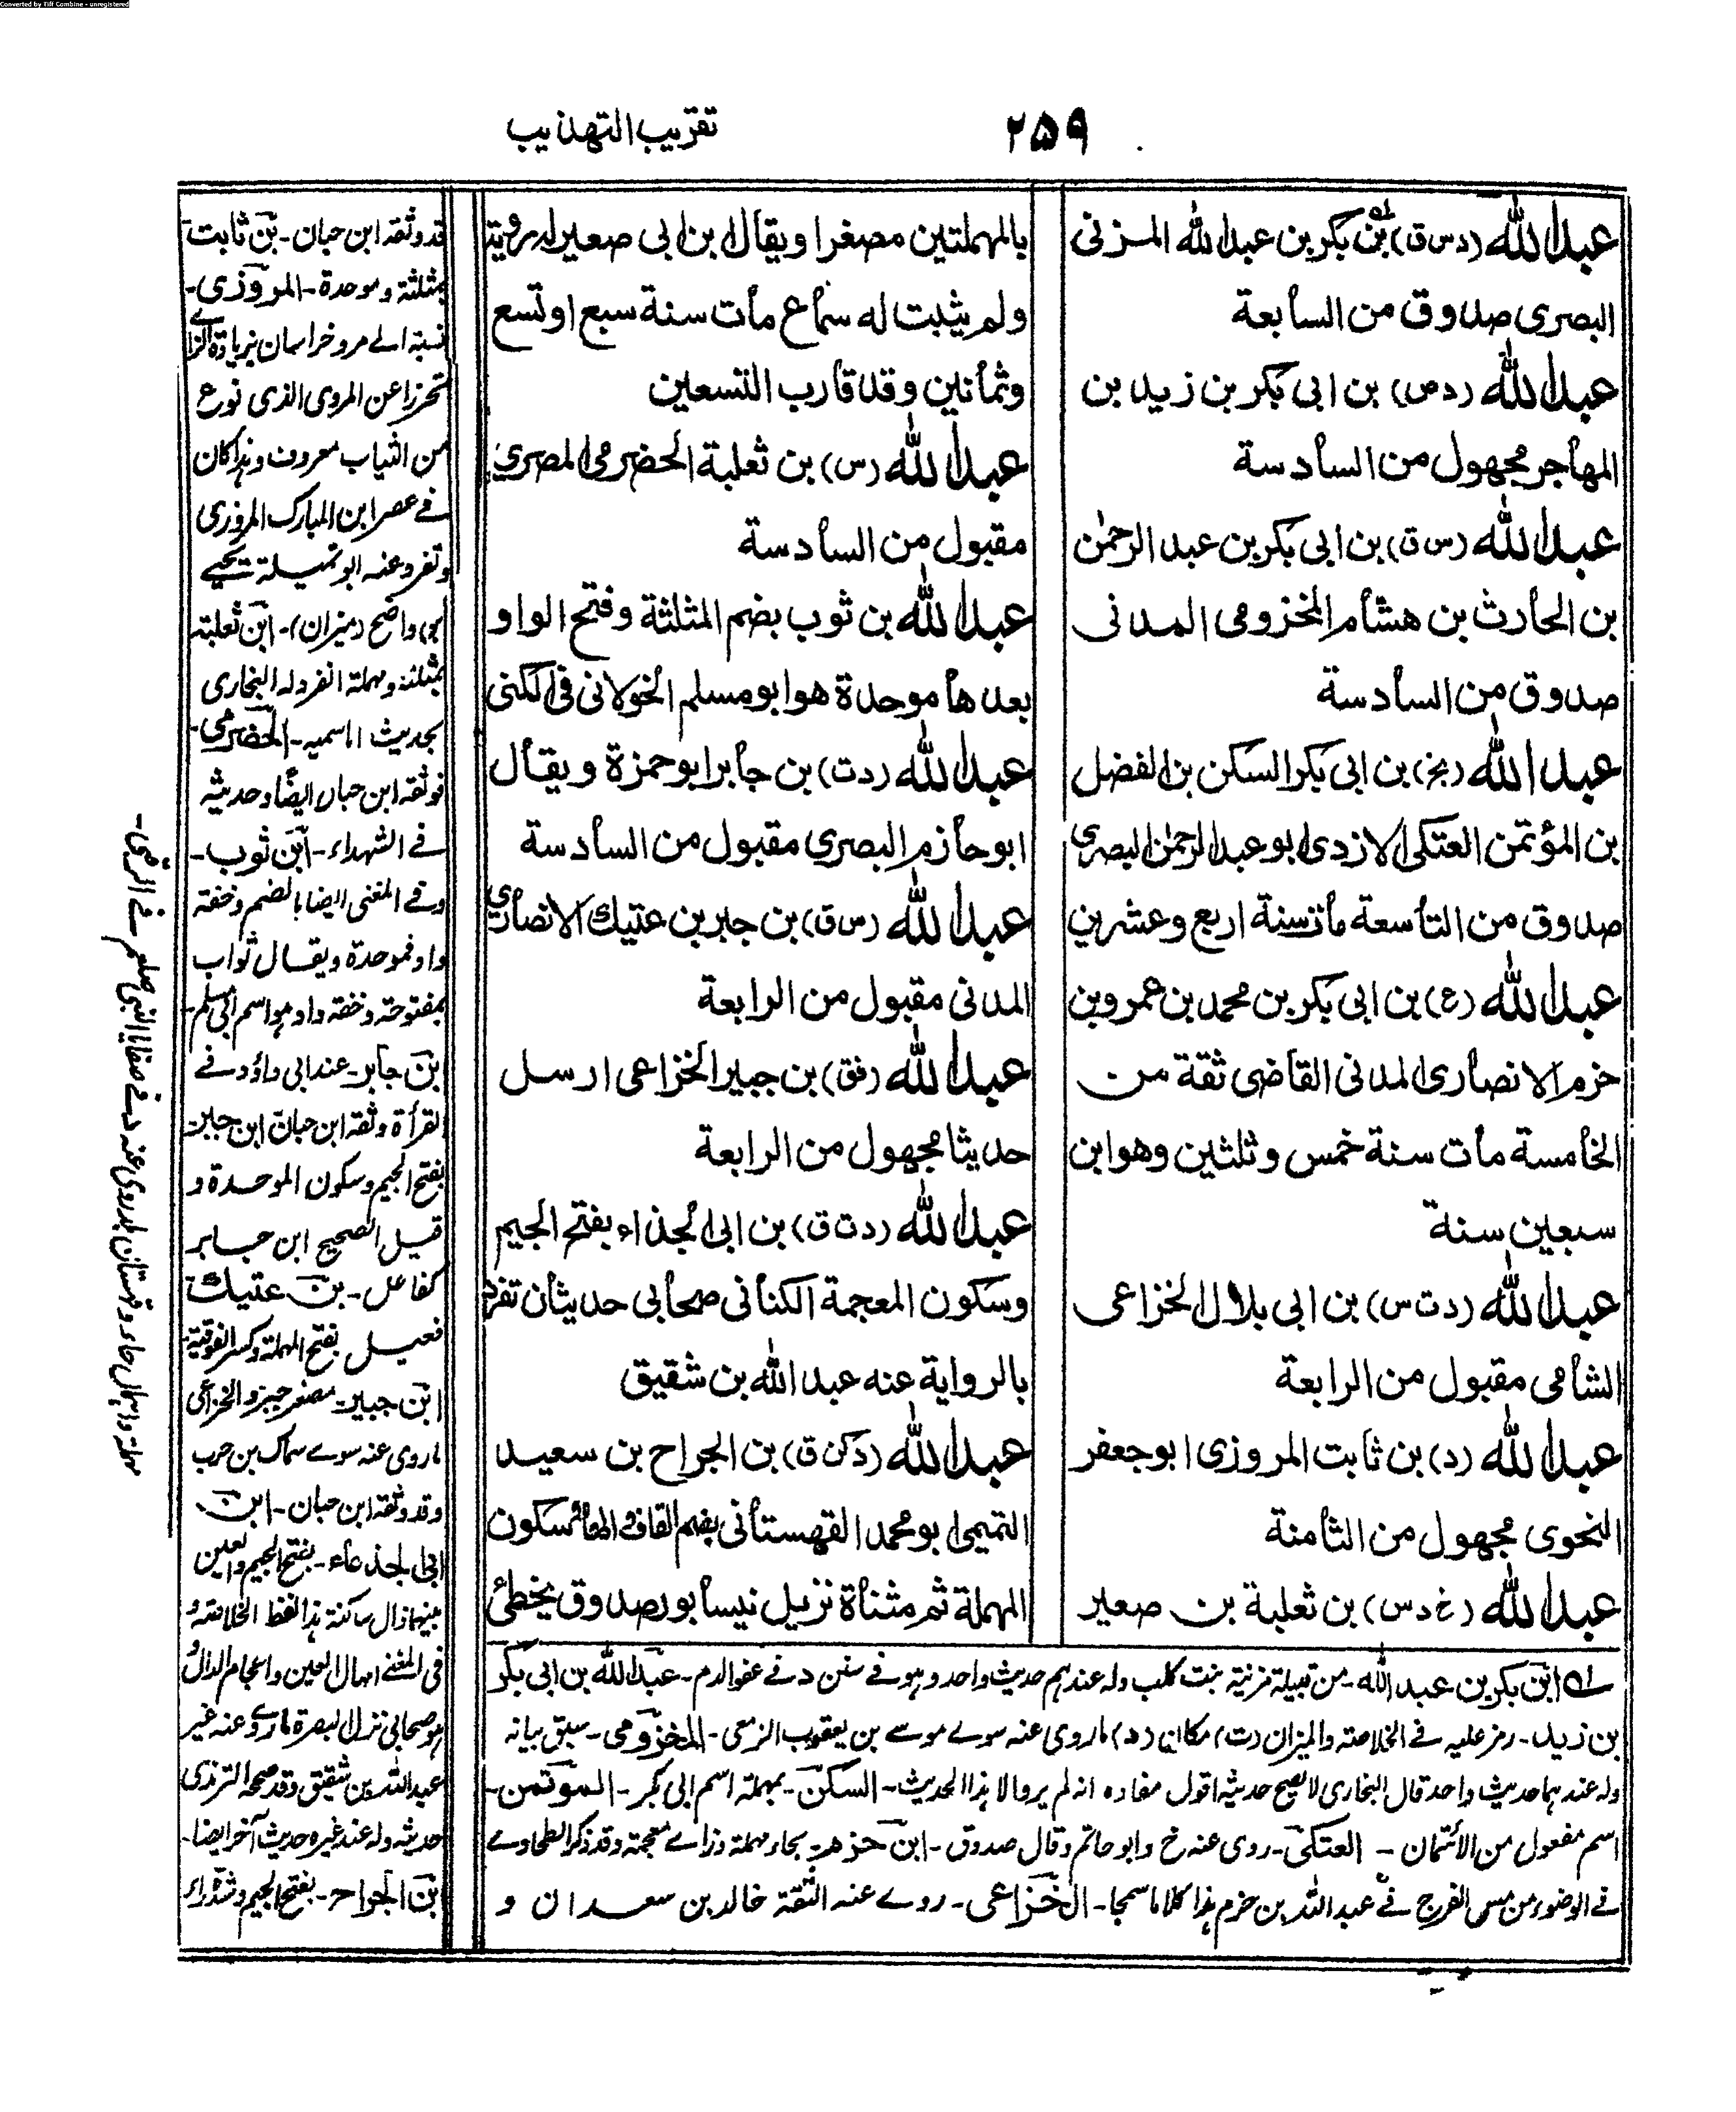 Converted by Tiff Combine - unregistered
۲۵۹
تقريب التهذيب
عبد الله (د س ق) بن بكر بن عبد الله المزنى
البصرى صدوق من السابعة
عبد الله (د ص) بن ابى بكر بن زيد بن
المهاجر مجهول من السادسة
عبد الله (س ق) بن ابى بكر بن عبد الرحمٰن
بن الحارث بن هشام المخزومى المدنى
صدوق من السادسة
عبد الله (بخ) بن ابى بكر السكن بن الفضل
بن المؤتمن العتكى الازدى ابو عبد الرحمٰن البصرى
صدوق من التاسعة مات سنة اربع وعشرين
عبد الله (ع) بن ابى بكر بن محمد بن عمرو بن
حزم الانصارى المدنى القاضى ثقة من
الخامسة مات سنة خمس وثلثين وهو ابن
سبعين سنة
عبد الله (د ت س) بن ابى بلال الخزاعى
الشامى مقبول من الرابعة
عبد الله (د) بن ثابت المروزى ابو جعفر
النحوى مجهول من الثامنة
عبد الله (خ د س) بن ثعلبة بن صعير
بالمهملتين مصغرا ويقال ابن ابى صعير له رؤية
ولم يثبت له سماع مات سنة سبع او تسع
وثمانين وقد قارب التسعين
عبد الله (س) بن ثعلبة الحضرمى المصرى
مقبول من السادسة
عبد الله بن ثوب بضم المثلثة وفتح الواو
بعدها موحدة هو ابو مسلم الخولانى فى الكنى
عبد الله (د ت) بن جابر ابو حمزة ويقال
ابو حازم البصرى مقبول من السادسة
عبد الله (س ق) بن جبر بن عتيك الانصارى
المدنى مقبول من الرابعة
عبد الله (فق) بن جبير الخزاعى ارسل
حديثا مجهول من الرابعة
عبد الله (د ت ق) بن ابى الجذاء بفتح الجيم
وسكون المعجمة الكنانى صحابى حديثان تفرد
بالرواية عنه عبد الله بن شقيق
عبد الله (دكن ق) بن الجراح بن سعيد
التميمى ابو محمد القهستانى بضم القاف والهاء وسكون
المهملة ثم مثناة نزيل نيسابور صدوق يخطئ
له ابن بكر بن عبد الله - من قبيلة مزنية بنت كلب وله عندهم حديث واحد وهو فے سنن د فے عفو الدم - عبد الله بن ابى بكر
بن زيد - رمز عليه فے الخلاصة والميزان (ت) مكان (د) ما روى عنه سوے موسے بن يعقوب الزمعى - المخزومى - سبق بيانه
وله عندهما حديث واحد قال البخارى لا يصح حديثه اقول مفاده انه لم يرو الا هذا الحديث - السكن - بمهملة اسم ابى بكر - المؤتمن -
اسم مفعول من الائتمان - العتكى - روى عنه خ وابو حاتم وقال صدوق - ابن حزم - بحاء مهملة وزاے معجمة وقد ذكر الطحاوے
فے الوضوء من مس الفرج فے عبد الله بن حزم هذا كلاما سمجا - الخزاعى - روے عنه الثقة خالد بن سعدان و
قد وثقه ابن حبان - بن ثابت
بمثلثة وموحدة - المروزى -
نسبة الے مرو خراسان بزيادة الزاے
تحرزا عن المروى الذى نوع
من الثياب معروف وهذا كان
فے عصر ابن المبارك المروزى
وتفرد عنه ابو تميلة يحيے
بن واضح (ميزان) - ابن ثعلبة
بمثلثة ومهملة انفرد له البخارى
بحديث - الحضرمى -
وثقه ابن حبان ايضا وحديثه
فے الشهداء - ابن ثوب -
وفے المغنى ايضا بالضم وخفة
واو فموحدة ويقال ثواب
بمفتوحة وخفة واو هو اسم ابى مسلم -
بن جابر - عند ابى داؤد فے
القرأة وثقه ابن حبان ابن جبر
بفتح الجيم وسكون الموحدة و
قيل الصحيح ابن جابر
كفاعل - بن عتيك
فعيل بفتح المهملة وكسر الفوقية
ابن جبير - مصغر جبر والخزاعى
ما روى عنه سوے سماك بن حرب
وقد وثقه ابن حبان - ابن
ابى الجذعاء - بفتح الجيم والعين
بينهما ذال ساكنة هذا لفظ الخلاصة و
فى المغنے اهمال العين واعجام الدال و
هو صحابى نزل البصرة ما روى عنه غير
عبد الله بن شقيق وقد صحح الترمذى
حديثه وله عند غيره حديث آخر ايضا -
ابن الجراح - بفتح الجيم وشد راء
مهملة واهمال حاء وقهستان بلد روى عنه د فے صفايا النبى صلعم